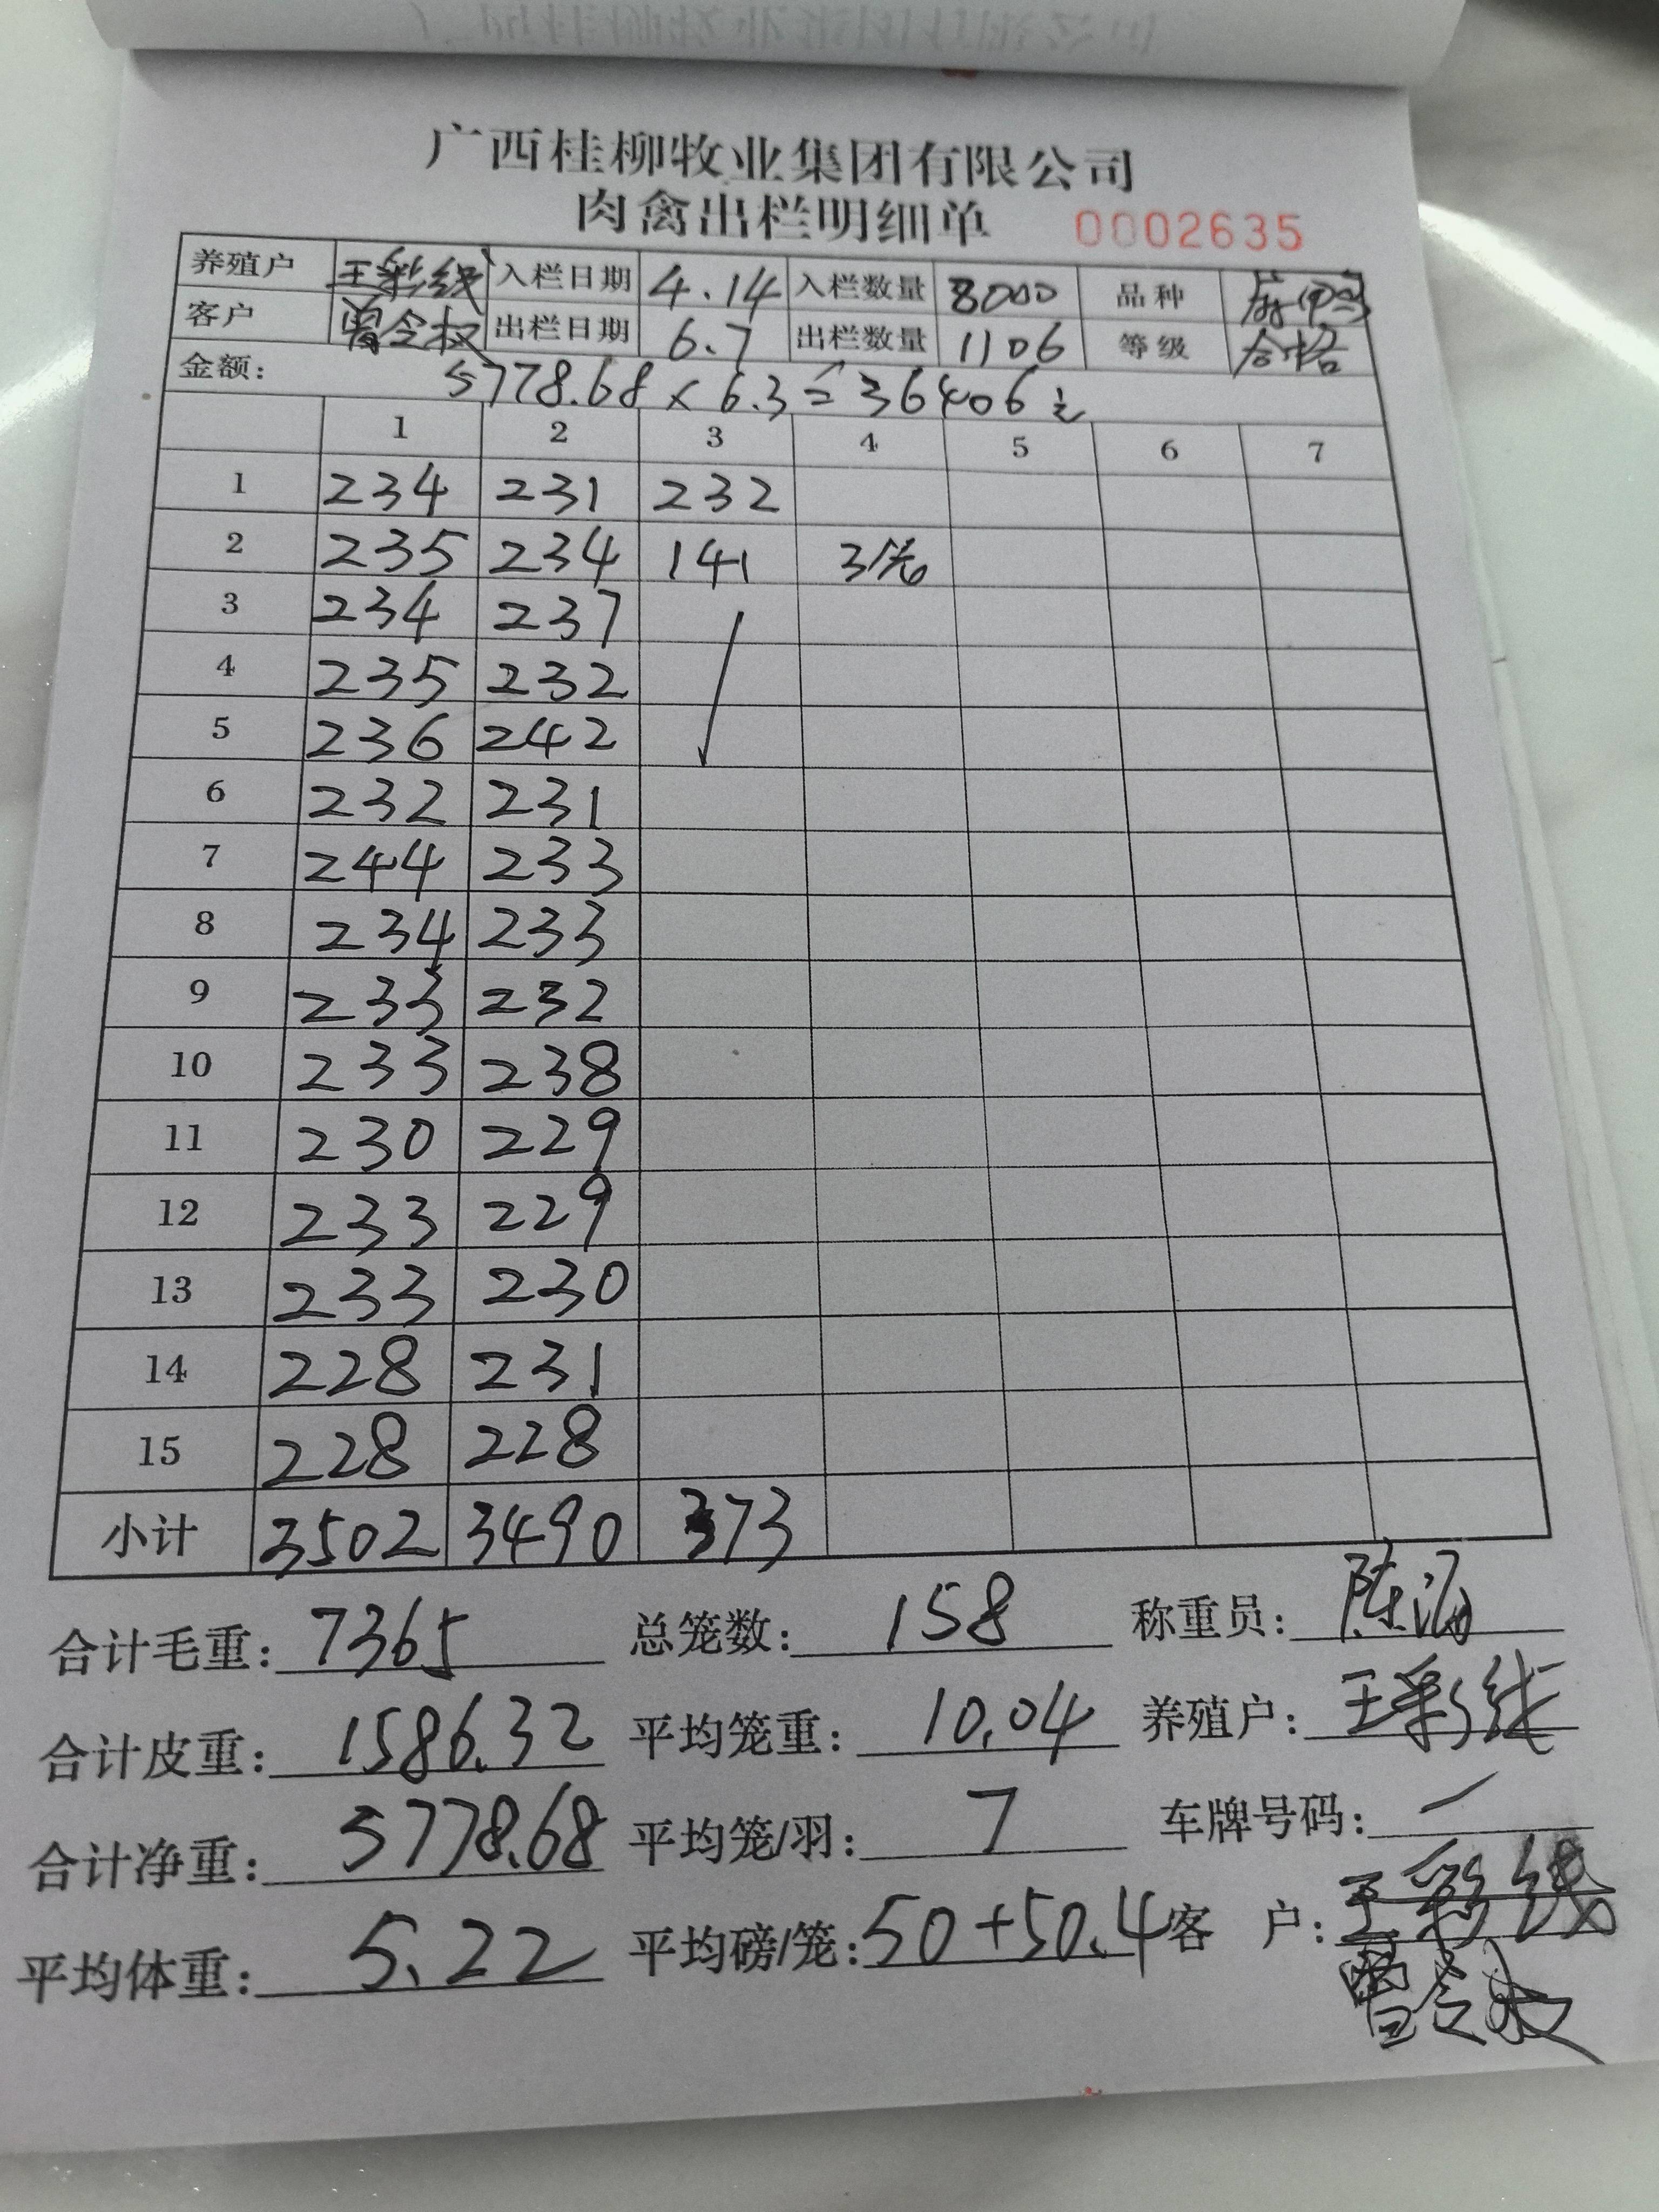 广西桂柳牧业集团有限公司
肉禽出栏明细单 0002635
养殖户 王彩线 入栏日期 4.14 入栏数量 8000 品种
客户 曾令权 出栏日期 6.7 出栏数量 1106 等级 合格
金额: 5778.68 × 6.3 = 36406元
1 2 3 4 5 6 7
1 234 231 232
2 235 234 141 3笼
3 234 237
4 235 232
5 236 242
6 232 231
7 244 233
8 234 233
9 233 232
10 233 238
11 230 229
12 233 229
13 233 230
14 228 231
15 228 228
小计 3502 3490 373
合计毛重: 7365 总笼数: 158 称重员: 陈
合计皮重: 1586.32 平均笼重: 10.04 养殖户: 王彩线
合计净重: 5778.68 平均笼/羽: 7 车牌号码: 一
平均体重: 5.22 平均磅/笼: 50+50.4 客 户: 王彩线
曾令权